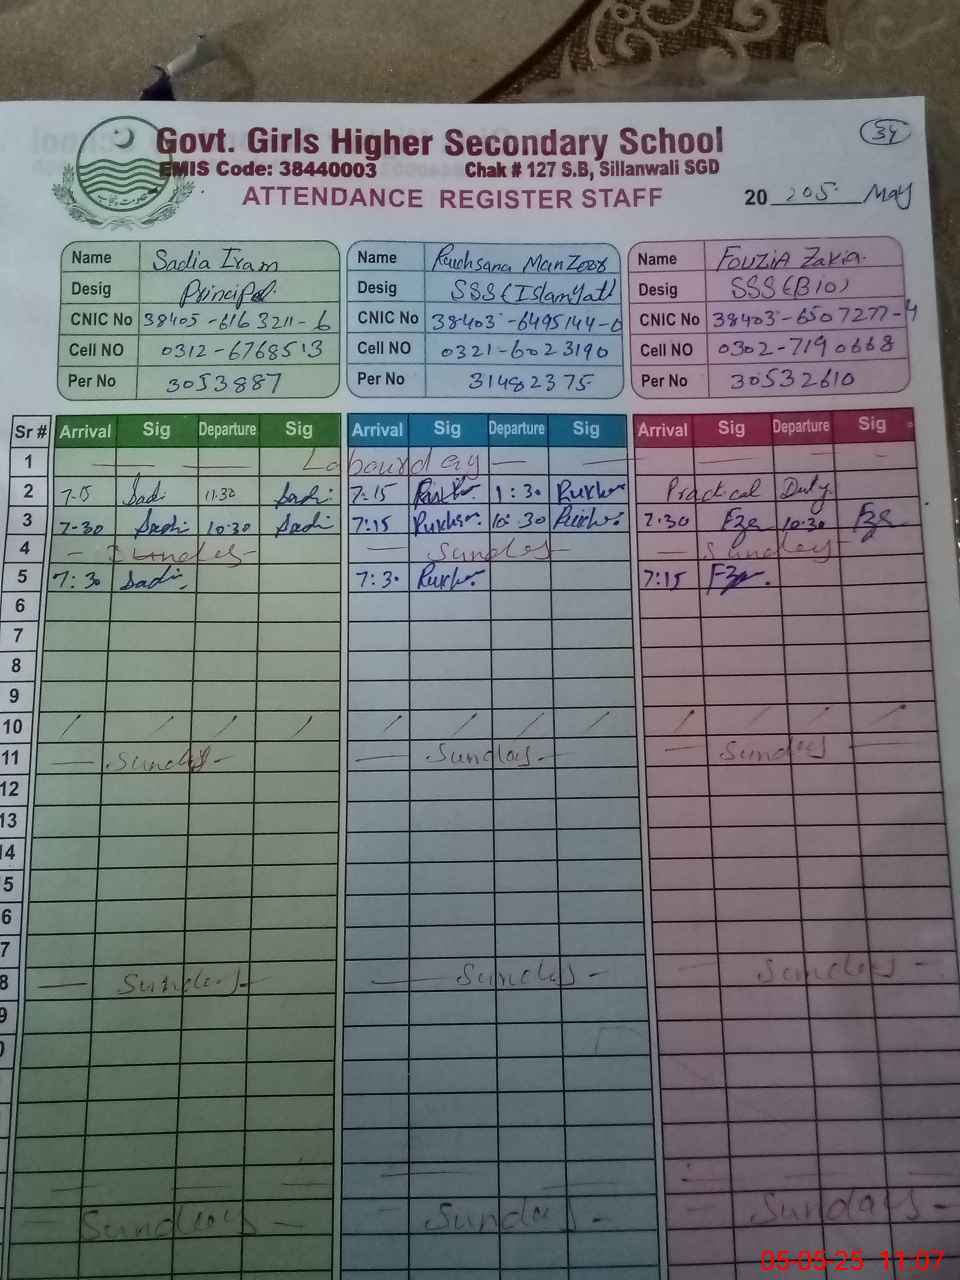 Govt. Girls Higher Secondary School
34
EMIS Code: 38440003 Chak # 127 S.B, Sillanwali SGD
ATTENDANCE REGISTER STAFF 20 205 May
Name Sadia Iram Name Ruchsana Manzoor Name Fouzia Zakia
Desig Principal Desig SSS (Islamiyat) Desig SSS (BIO)
CNIC No 38405-6163211-6 CNIC No 38403-6495144-0 CNIC No 38403-6507277-4
Cell NO 0312-6768513 Cell NO 0321-6023190 Cell NO 0302-7190668
Per No 3053887 Per No 31482375 Per No 30532610
Sr # Arrival Sig Departure Sig Arrival Sig Departure Sig Arrival Sig Departure Sig
1 Labour day
2 7-15 Sadi 11.30 Sadi 7:15 1:30 Rukhs Practical Duty
3 7-30 Sadi 10:30 Sadi 7:15 Rukhs 10:30 Rukhs 7.30 Fze 10:30 Fze
4 Sunday Sunday Sunday
5 7:30 Sadi 7:30 Rukhs 7:15 Fze
6
7
8
9
10
11 Sunday Sunday Sunday
12
13
14
5
6
7
8 Sunday Sunday Sunday
9
0
Sunday Sunday Sunday
05-05-25 11:07